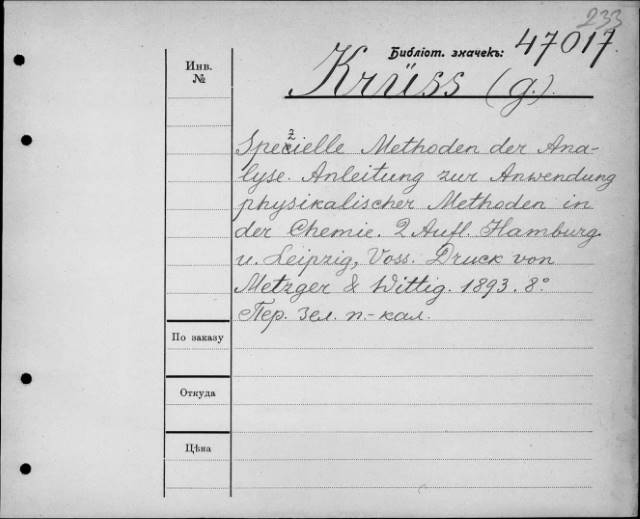 233
Библіот. значекъ: 47017.
Инв.
№
Krüss (G.).
Spezielle Methoden der Ana-
lyse. Anleitung zur Anwendung
physikalischer Methoden in
der Chemie. 2 Aufl. Hamburg
u. Leipzig, Voss. Druck von
Metzger & Wittig. 1893. 8°
Пер. зел. п.-кал.
По заказу
Откуда
Цѣна